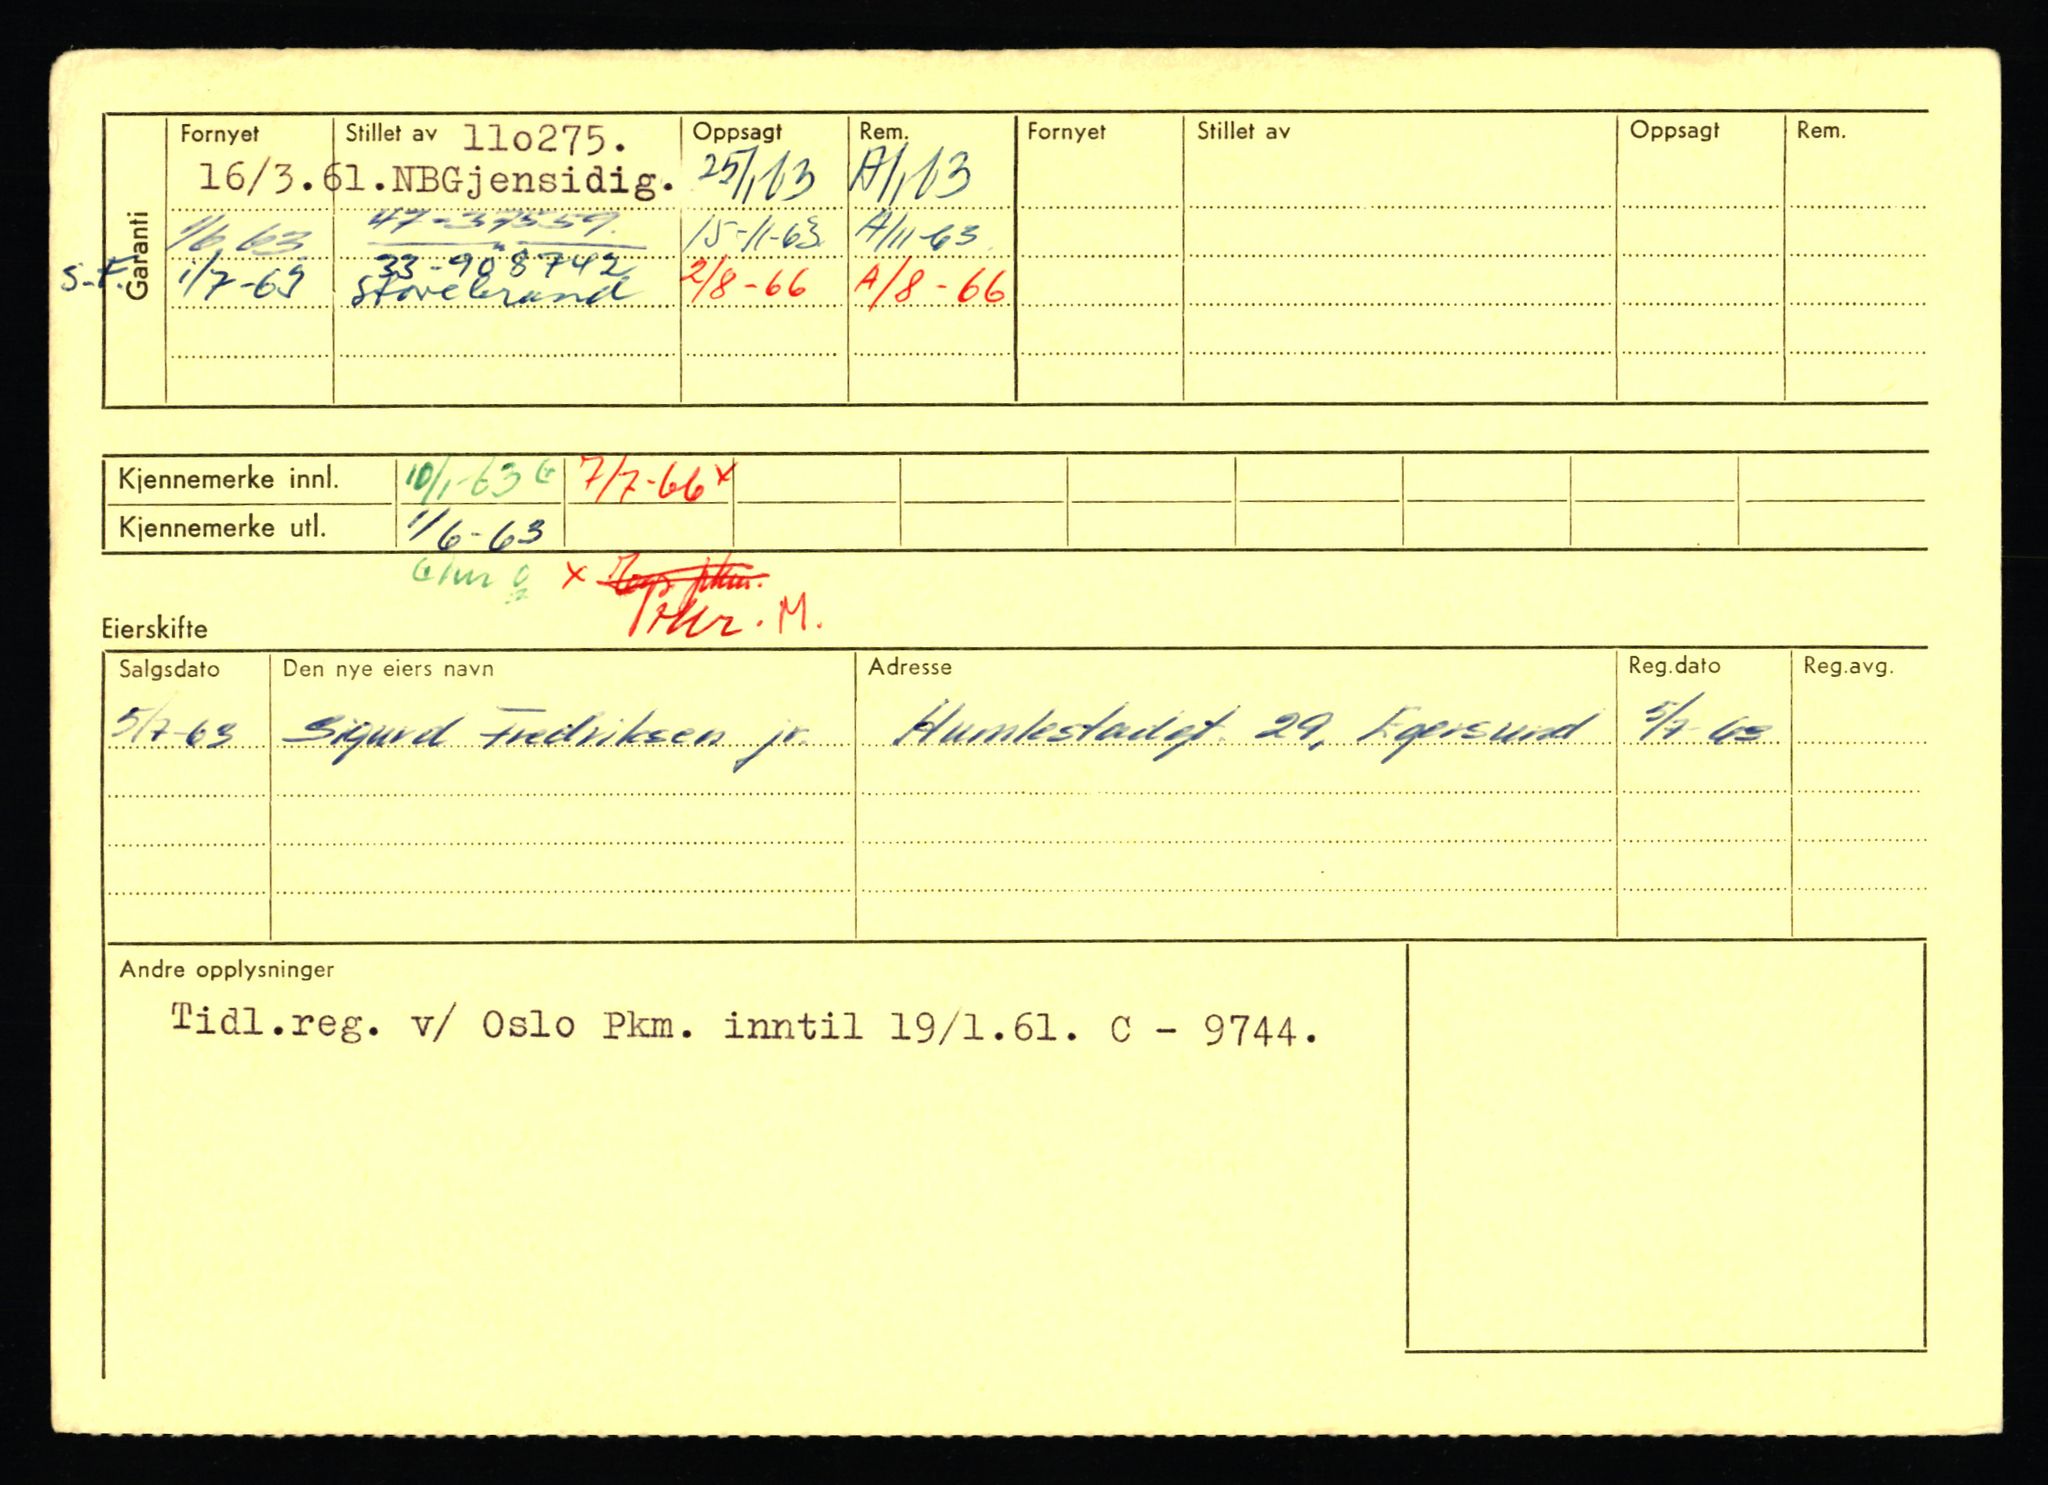 Garanti
Fornyet Stillet av 11o275. Oppsagt Rem. Fornyet Stillet av Oppsagt Rem.
16/3.61. NBGjensidig. 25/1 63 A/1 63
1/6 63 47-37559. 15-11-63. A/11-63.
S.F. 1/7-63 33-908742 Storebrand 2/8-66 A/8-66
Kjennemerke innl. 10/1-63 G 7/7-66 x
Kjennemerke utl. 1/6-63
x
M.
Eierskifte
Salgsdato Den nye eiers navn Adresse Reg.dato Reg.avg.
5/7-63 Sigurd Fredriksen jr. Humlestadgt. 29, Egersund 5/7-63
Andre opplysninger
Tidl.reg. v/ Oslo Pkm. inntil 19/1.61. C - 9744.